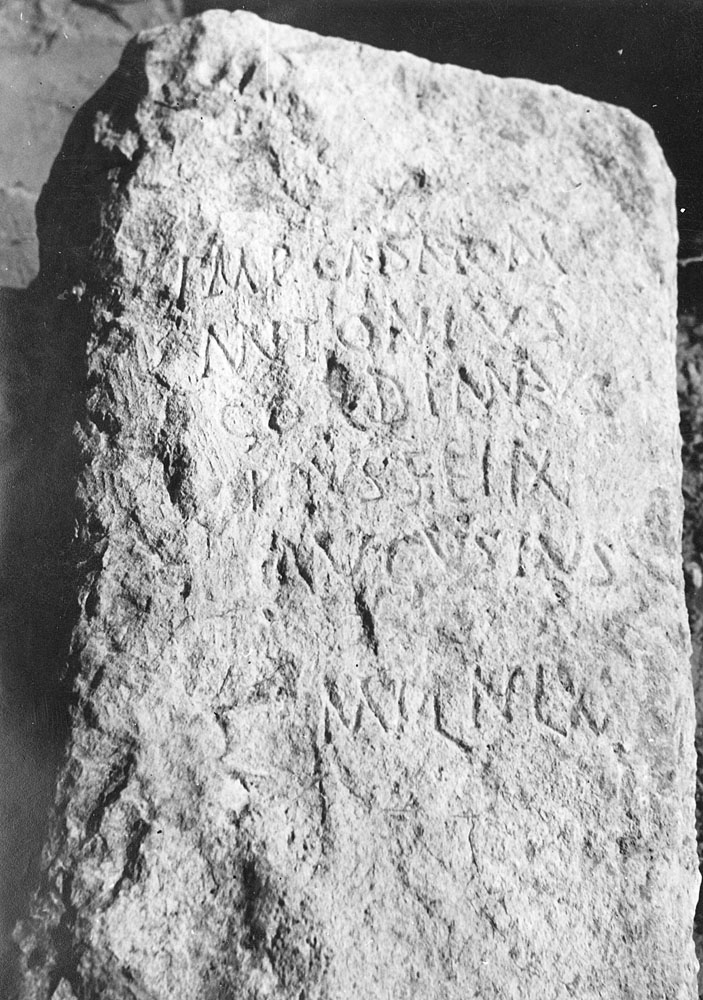 IMP CAESAR M
ANTONIVS
GORDIANVS
PIVS FELIX
AVGVSTVS
MIL N LX